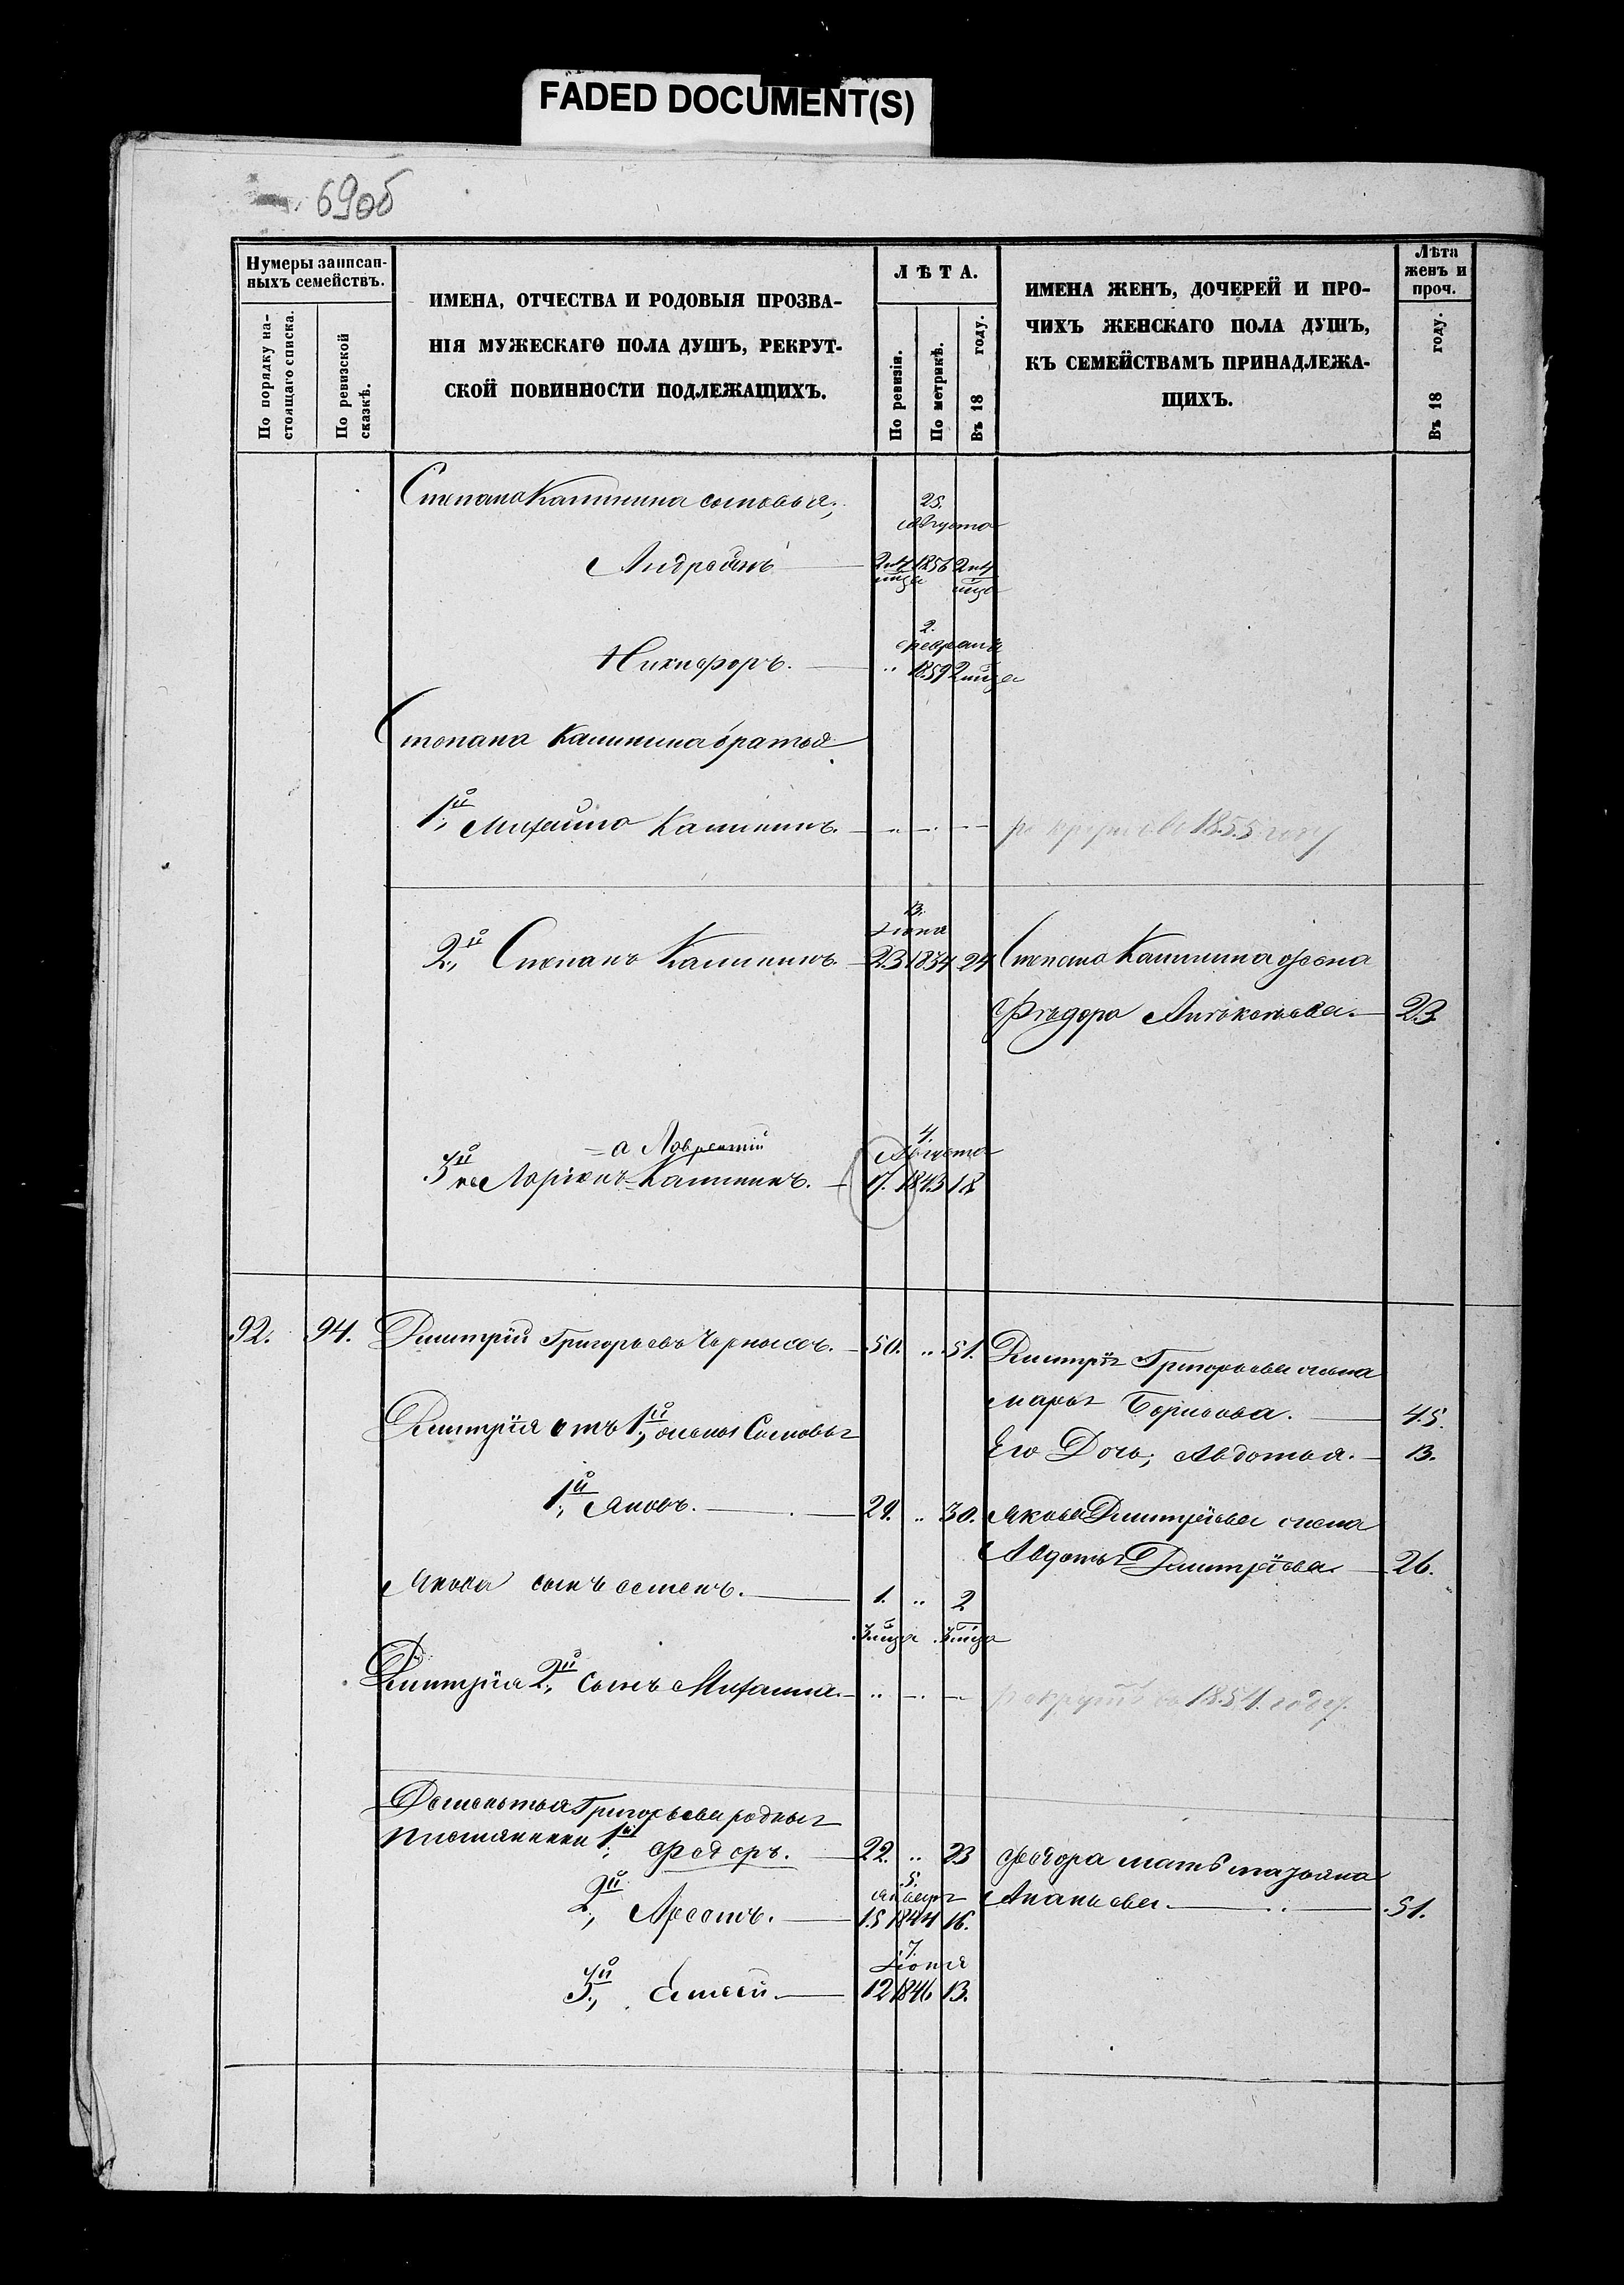 FADED DOCUMENT(S)
69об
Нумеры записан-
ныхъ семействъ.
По порядку на-
стоящаго списка.
По ревизской
сказкѣ.
ИМЕНА, ОТЧЕСТВА И РОДОВЫЯ ПРОЗВА-
НІЯ МУЖЕСКАГО ПОЛА ДУШЪ, РЕКРУТ-
СКОЙ ПОВИННОСТИ ПОДЛЕЖАЩИХЪ.
ЛѢТА.
По ревизіи.
По метрикѣ.
Въ 18 году.
ИМЕНА ЖЕНЪ, ДОЧЕРЕЙ И ПРО-
ЧИХЪ ЖЕНСКАГО ПОЛА ДУШЪ,
КЪ СЕМЕЙСТВАМЪ ПРИНАДЛЕЖА-
ЩИХЪ.
Лѣта
женъ и
проч.
Въ 18 году.
Степана Калинина сыновья;
25.
Августа
1856
Никифоръ.
2.
февраля
1859 2 мца
Степана Калинина братья
1й Михайло Калининъ.
рекрутъ въ 1855 году
2й Степанъ Калининъ.
13.
Іюня
23 1834 24
Степана Калинина жена
Ѳедора 23
а Лаврентий
3й не Ларіонъ Калининъ.
4.
Августа
17. 1843 18
92. 94. Дмитрий Григорьевъ 50. .. 51.
Дмитрія Григорьева жена
Марья Борисова. 45.
Дмитрія отъ 1й жены Сыновья
Его Дочь; Авдотья. 13.
1й Яковъ. 29. .. 30.
Якова Дмитріева жена
Авдотья Дмитріева. 26.
Якова сынъ 1. .. 2
3 мца 3 мца
Дмитрія 2й сынъ Михаила.
рекрутъ въ 1854. году.
Григорьева родныя
племянники 1й Федоръ. 22. .. 23
Федора мать
Ананьева. 51.
2й 5.
15 1844 16.
3й 7.
Іюня
Елисей. 12 1846 13.